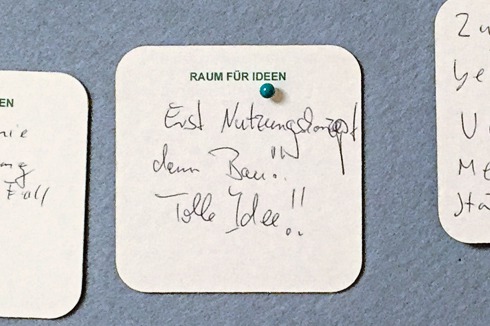 RAUM FÜR IDEEN
Erst Nutzungskonzept
dann Bau!!
Tolle Idee!!
EN
nie
Fall
Zu
Ge
U
Me
Stä